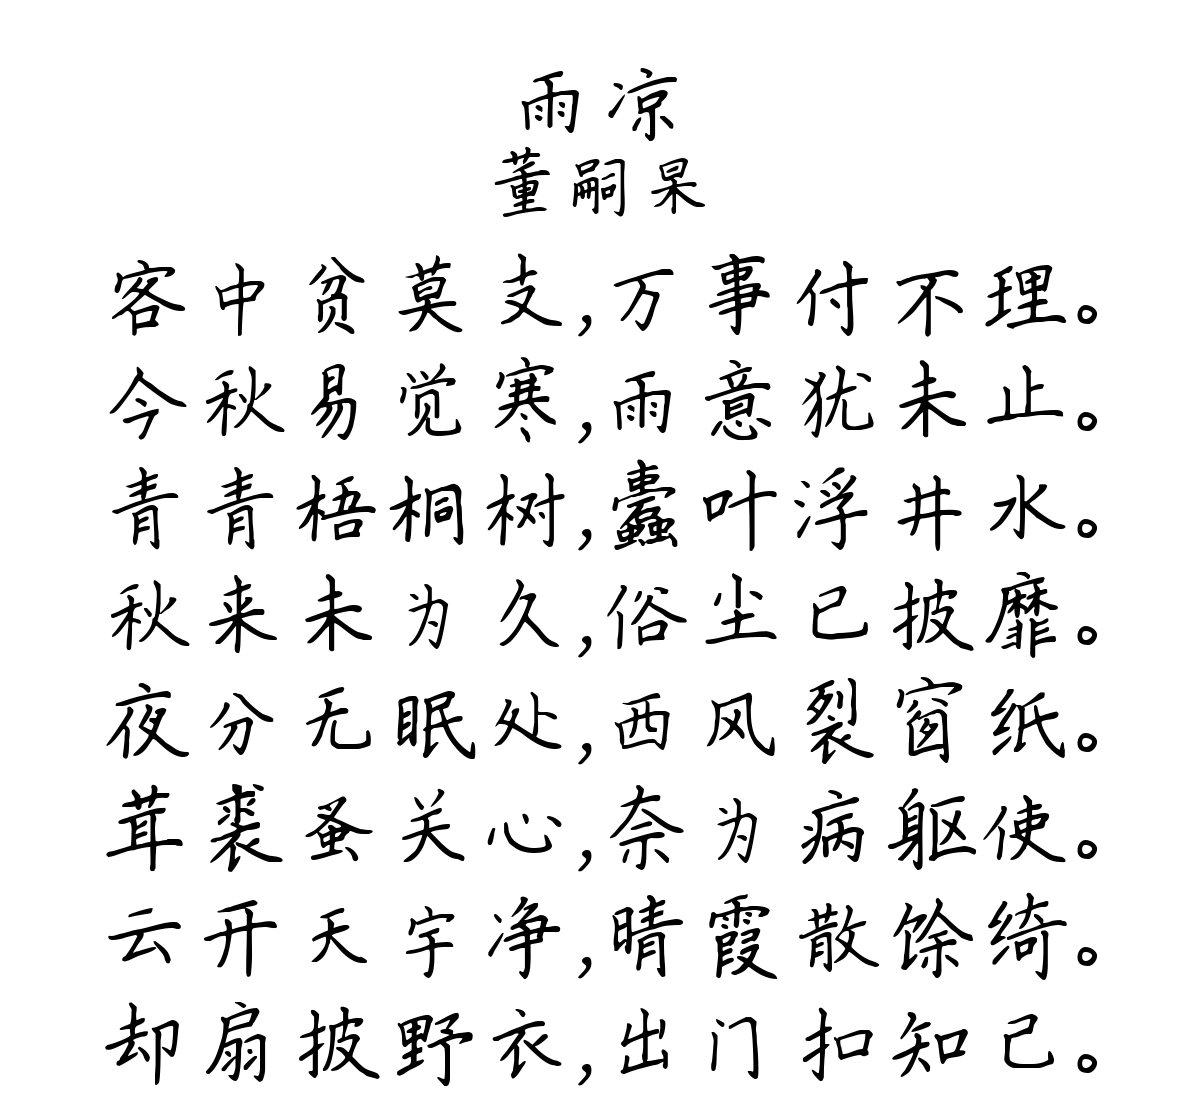 雨凉
董嗣杲
客中贫莫支,万事付不理。
今秋易觉寒,雨意犹未止。
青青梧桐树,蠹叶浮井水。
秋来未为久,俗尘已披靡。
夜分无眠处,西风裂窗纸。
茸裘蚤关心,奈为病躯使。
云开天宇净,晴霞散馀绮。
却扇披野衣,出门扣知己。